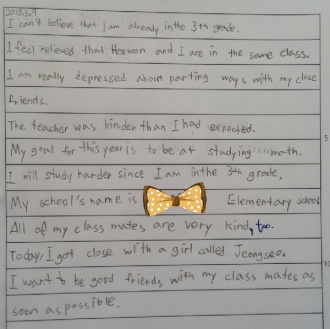 2015.3.9
I can't believe that I am already in the 3th grade.
I feel relieved that Heewon and I are in the same class.
I am really depressed about parting ways with my close
friends.
The teacher was kinder than I had expected.
My goal for this year is to be at studying math.
I will study harder since I am in the 3th grade.
My school's name is Elementary school
All of my class mates are very kind, too.
Today, I got close with a girl called Jeongseo.
I want to be good friends with my class mates as
soon as possible.
5
10